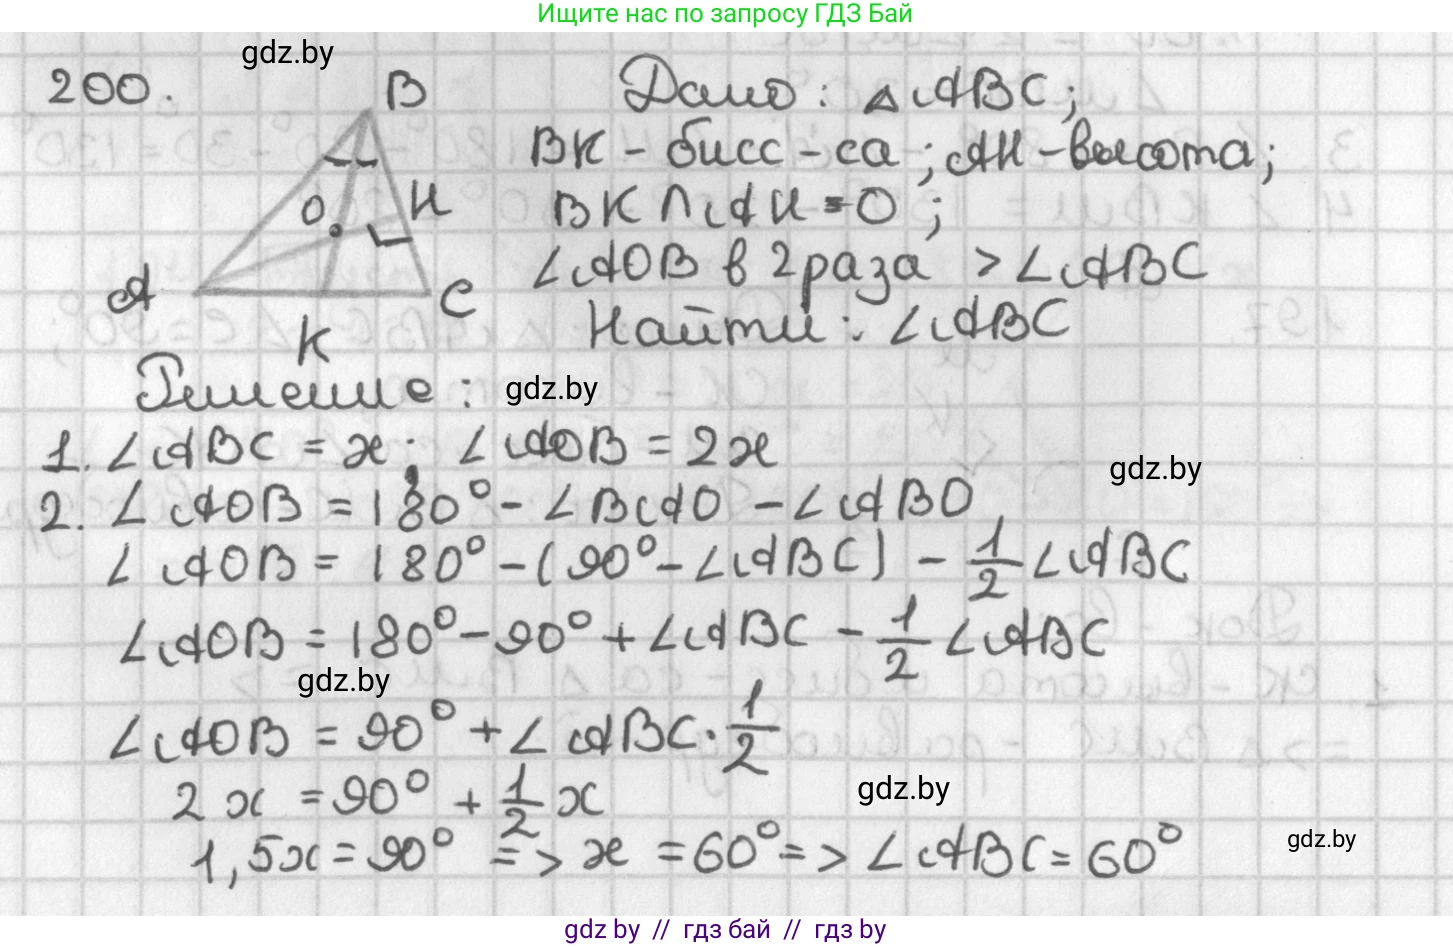 Ищите нас по запросу ГДЗ Бай
gdz.by
200.
B
Дано: △ABC;
BK - бисс-са; AH - высота;
O
H
BK ∩ AH = O;
∠AOB в 2 раза > ∠ABC
A
C
K
Найти: ∠ABC
Решение:
gdz.by
1. ∠ABC = x; ∠AOB = 2x
gdz.by
2. ∠AOB = 180° - ∠BAO - ∠ABO
∠AOB = 180° - (90° - ∠ABC) - 1/2 ∠ABC
∠AOB = 180° - 90° + ∠ABC - 1/2 ∠ABC
gdz.by
∠AOB = 90° + ∠ABC · 1/2
2x = 90° + 1/2 x
gdz.by
1,5x = 90° => x = 60° => ∠ABC = 60°
gdz.by
gdz by // гдз бай // гдз by